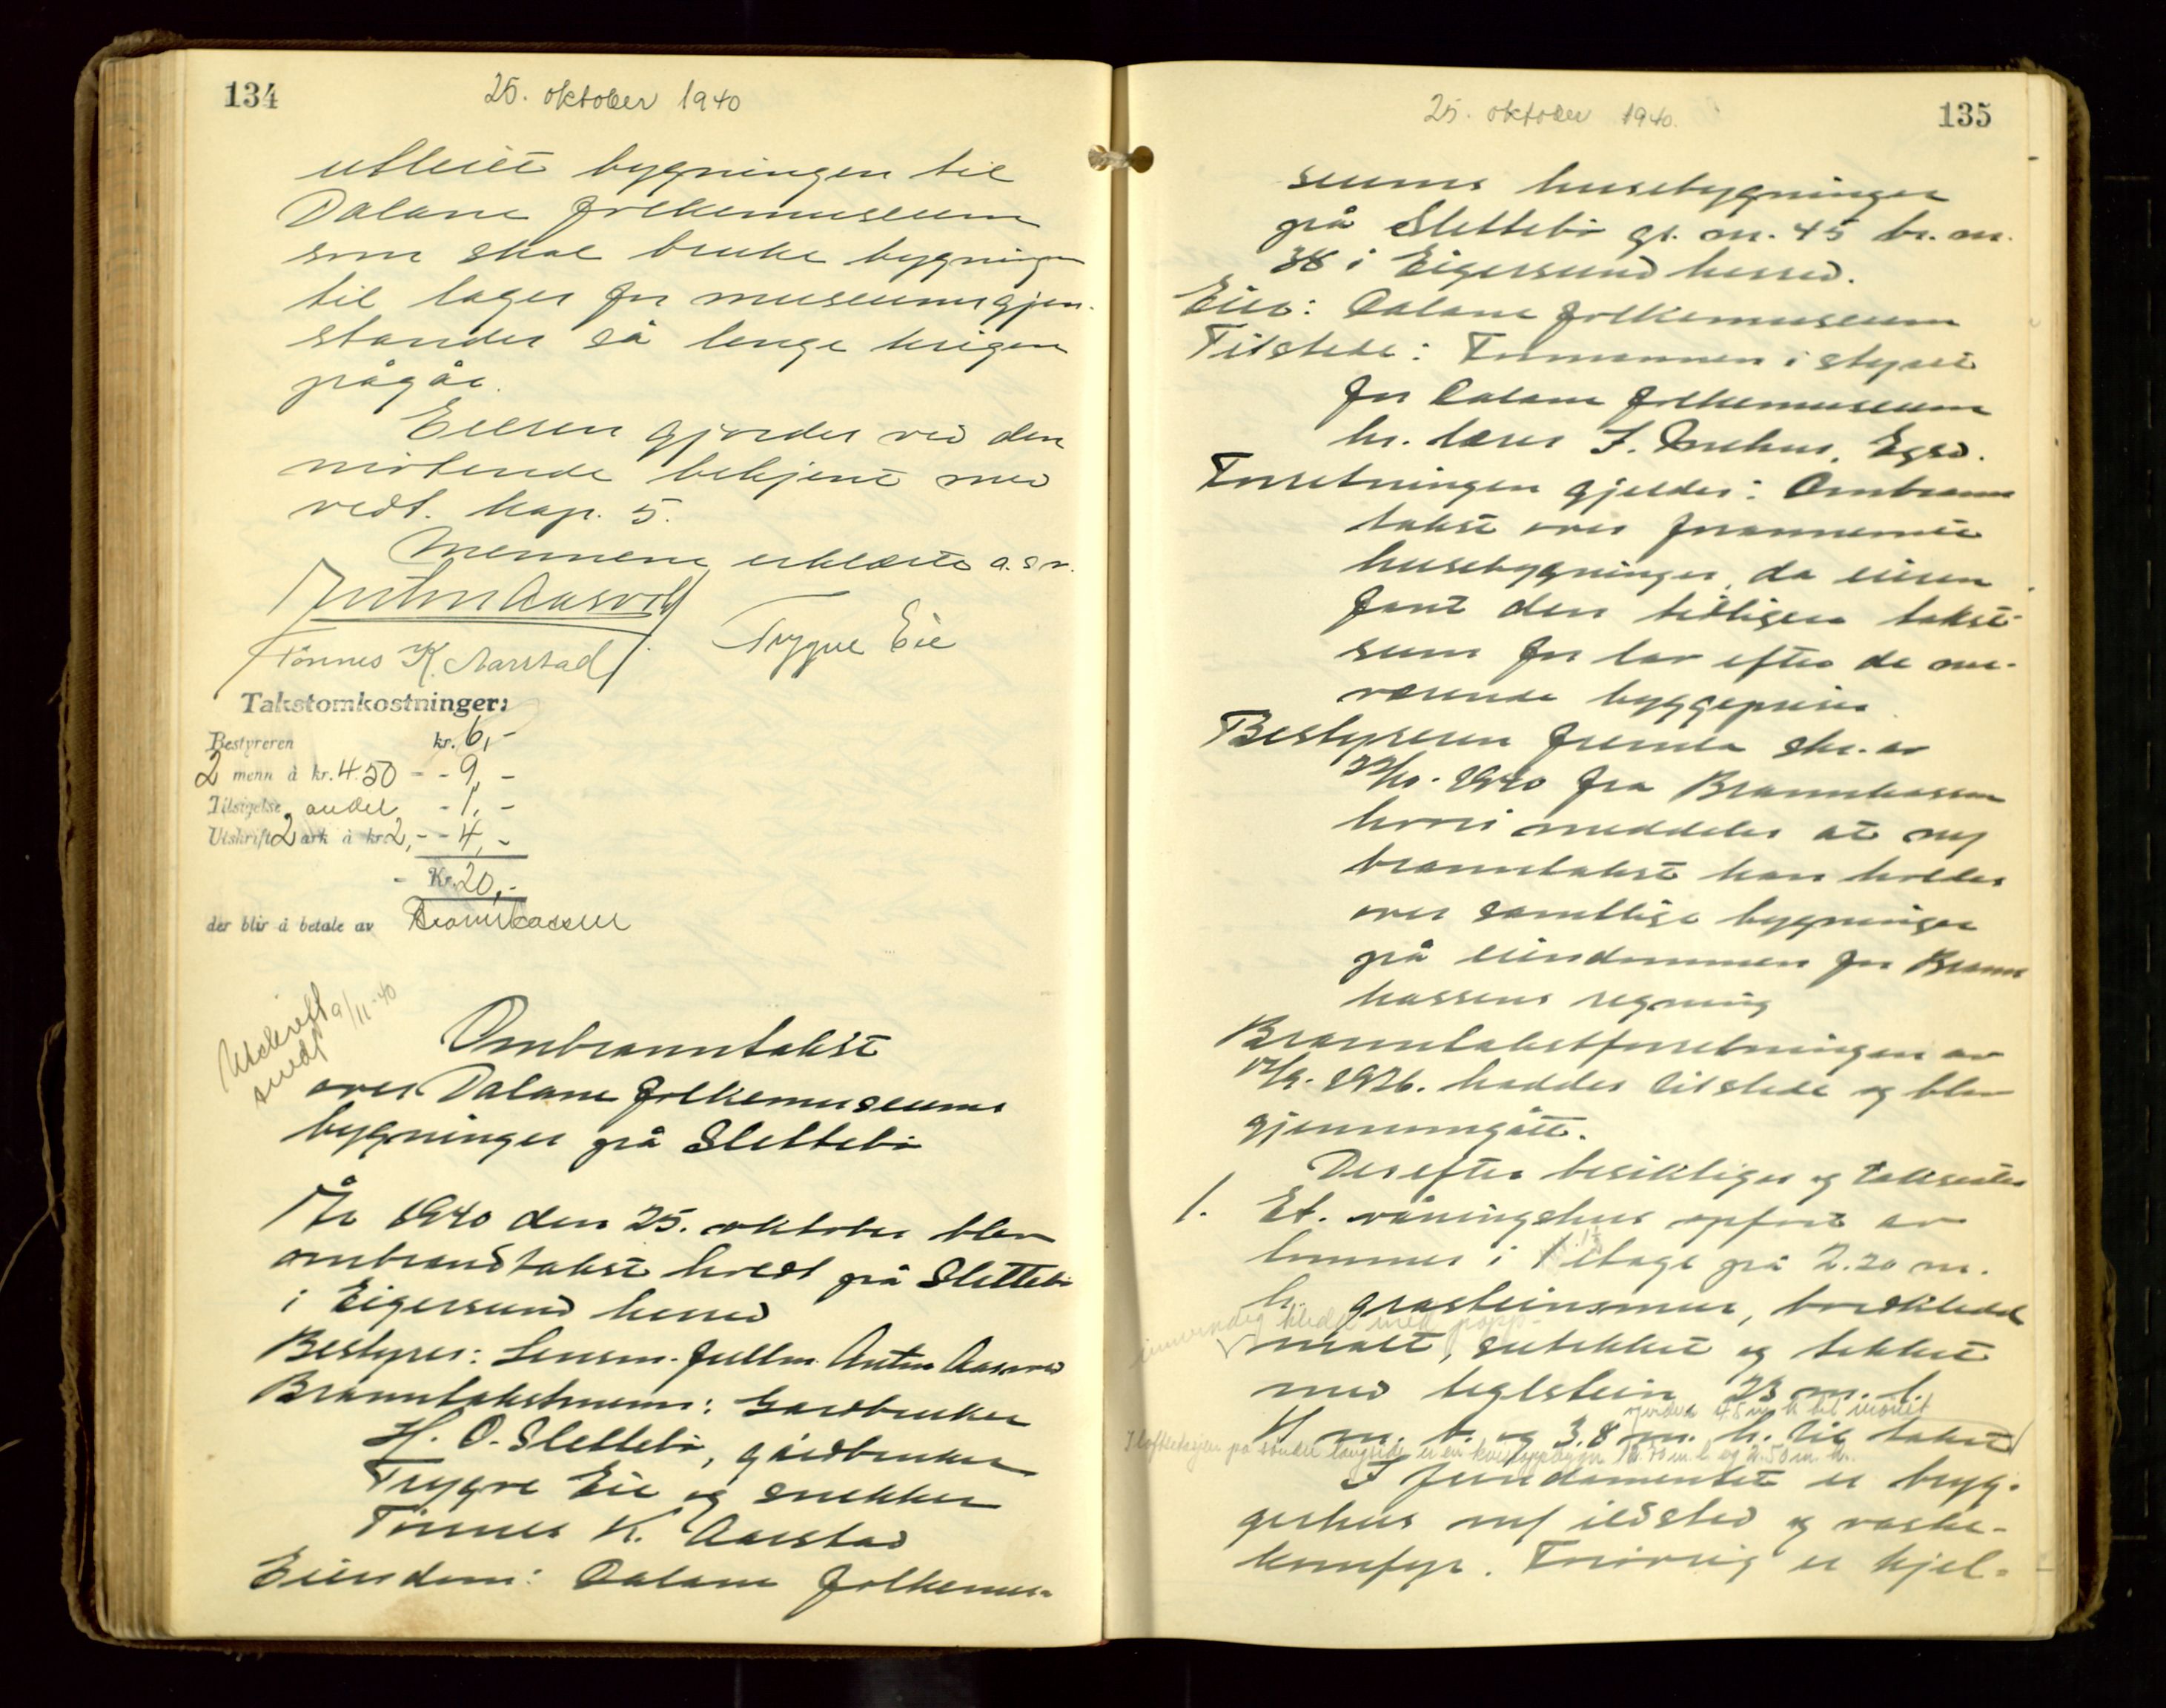 134
25. oktober 1940
utleiet bygningen til
Dalane folkemuseum
som skal bruke bygningen
til lager for museumsgjen-
stander så lenge krigen
pågår.
Eieren gjordes ved den
møtende bekjent med
vedt. kap. 5.
Mennene erklærte a.s.v.
Anton Aasvold
Tönnes K. Aarstad Trygve Eie
Takstomkostninger:
Bestyreren kr. 6,-
2 menn à kr. 4.50 - - 9,-
Tilsigelse, andel - 1,-
Utskrift 2 ark à kr. 2,- - 4,-
- Kr. 20,-
der blir å betale av Brannkassen
Utskrift 9/11-40
sendt
Ombranntakst
over Dalane folkemuseums
bygninger på Slettebø
År 1940 den 25. oktober blev
ombrandtakst holdt på Slettebø
i Eigersund herred
Bestyrer: Lensm. fullm. Anton Aasvold
Branntakstmenn: Gardbruker
H. O. Slettebø, gårdbruker
Trygve Eie og snekker
Tønnes K. Aarstad
Eiendom: Dalane folkemu-
135
25. oktober 1940.
seums husebygninger
på Slettebø gr. nr. 45 br. nr.
38 i Eigersund herred.
Eier: Dalane folkemuseum
Tilstede: Formannen i styret
for Dalane folkemuseum
hr. lærer J. Egsd.
Forretningen gjelder: Ombrann
takst over forannemte
husebygninger, da eieren
fant den tidligere takst-
sum for lav efter de nu-
værende byggepriser
Bestyreren fremla skr. av
/10-1940 fra Brannkassen
hvori meddeles at ny
branntakst kan holdes
over samtlige bygninger
på eiendommen for Brann
kassens regning
Branntakstforretningen av
17/9-1926. haddes tilstede og blev
gjennemgått.
Derefter besiktiges og takseres
1. Et. våningshus opført av
tømmer i 1½ etage på 2.20 m.
h. gråsteinsmur, bordkledd
innvendig kledd med papp-
malt, sutekket og tekket
med teglstein, 23 m. l.
gjerder 4.8 m h til mønet
11 m. b. og 3.8 m. h. til taket
I loftsetasjen på søndre langside er en kvistoppbygn 16.30 m. l og 2.50 m. h.
I fundamentet er bryg-
gerhus m/ ildsted og vaske-
komfyr. Forøvrig er kjel-